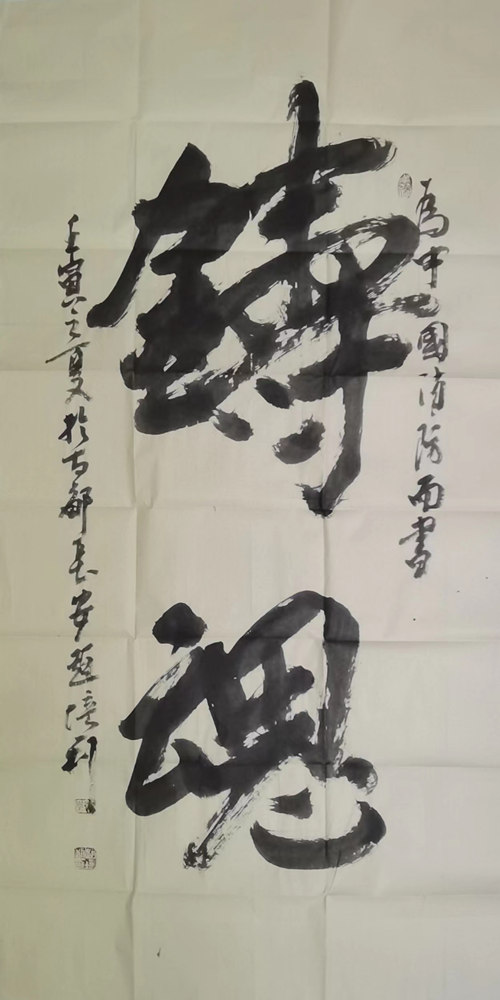 為中國消防而書
鑄魂
壬寅之夏於古都長安趙培利